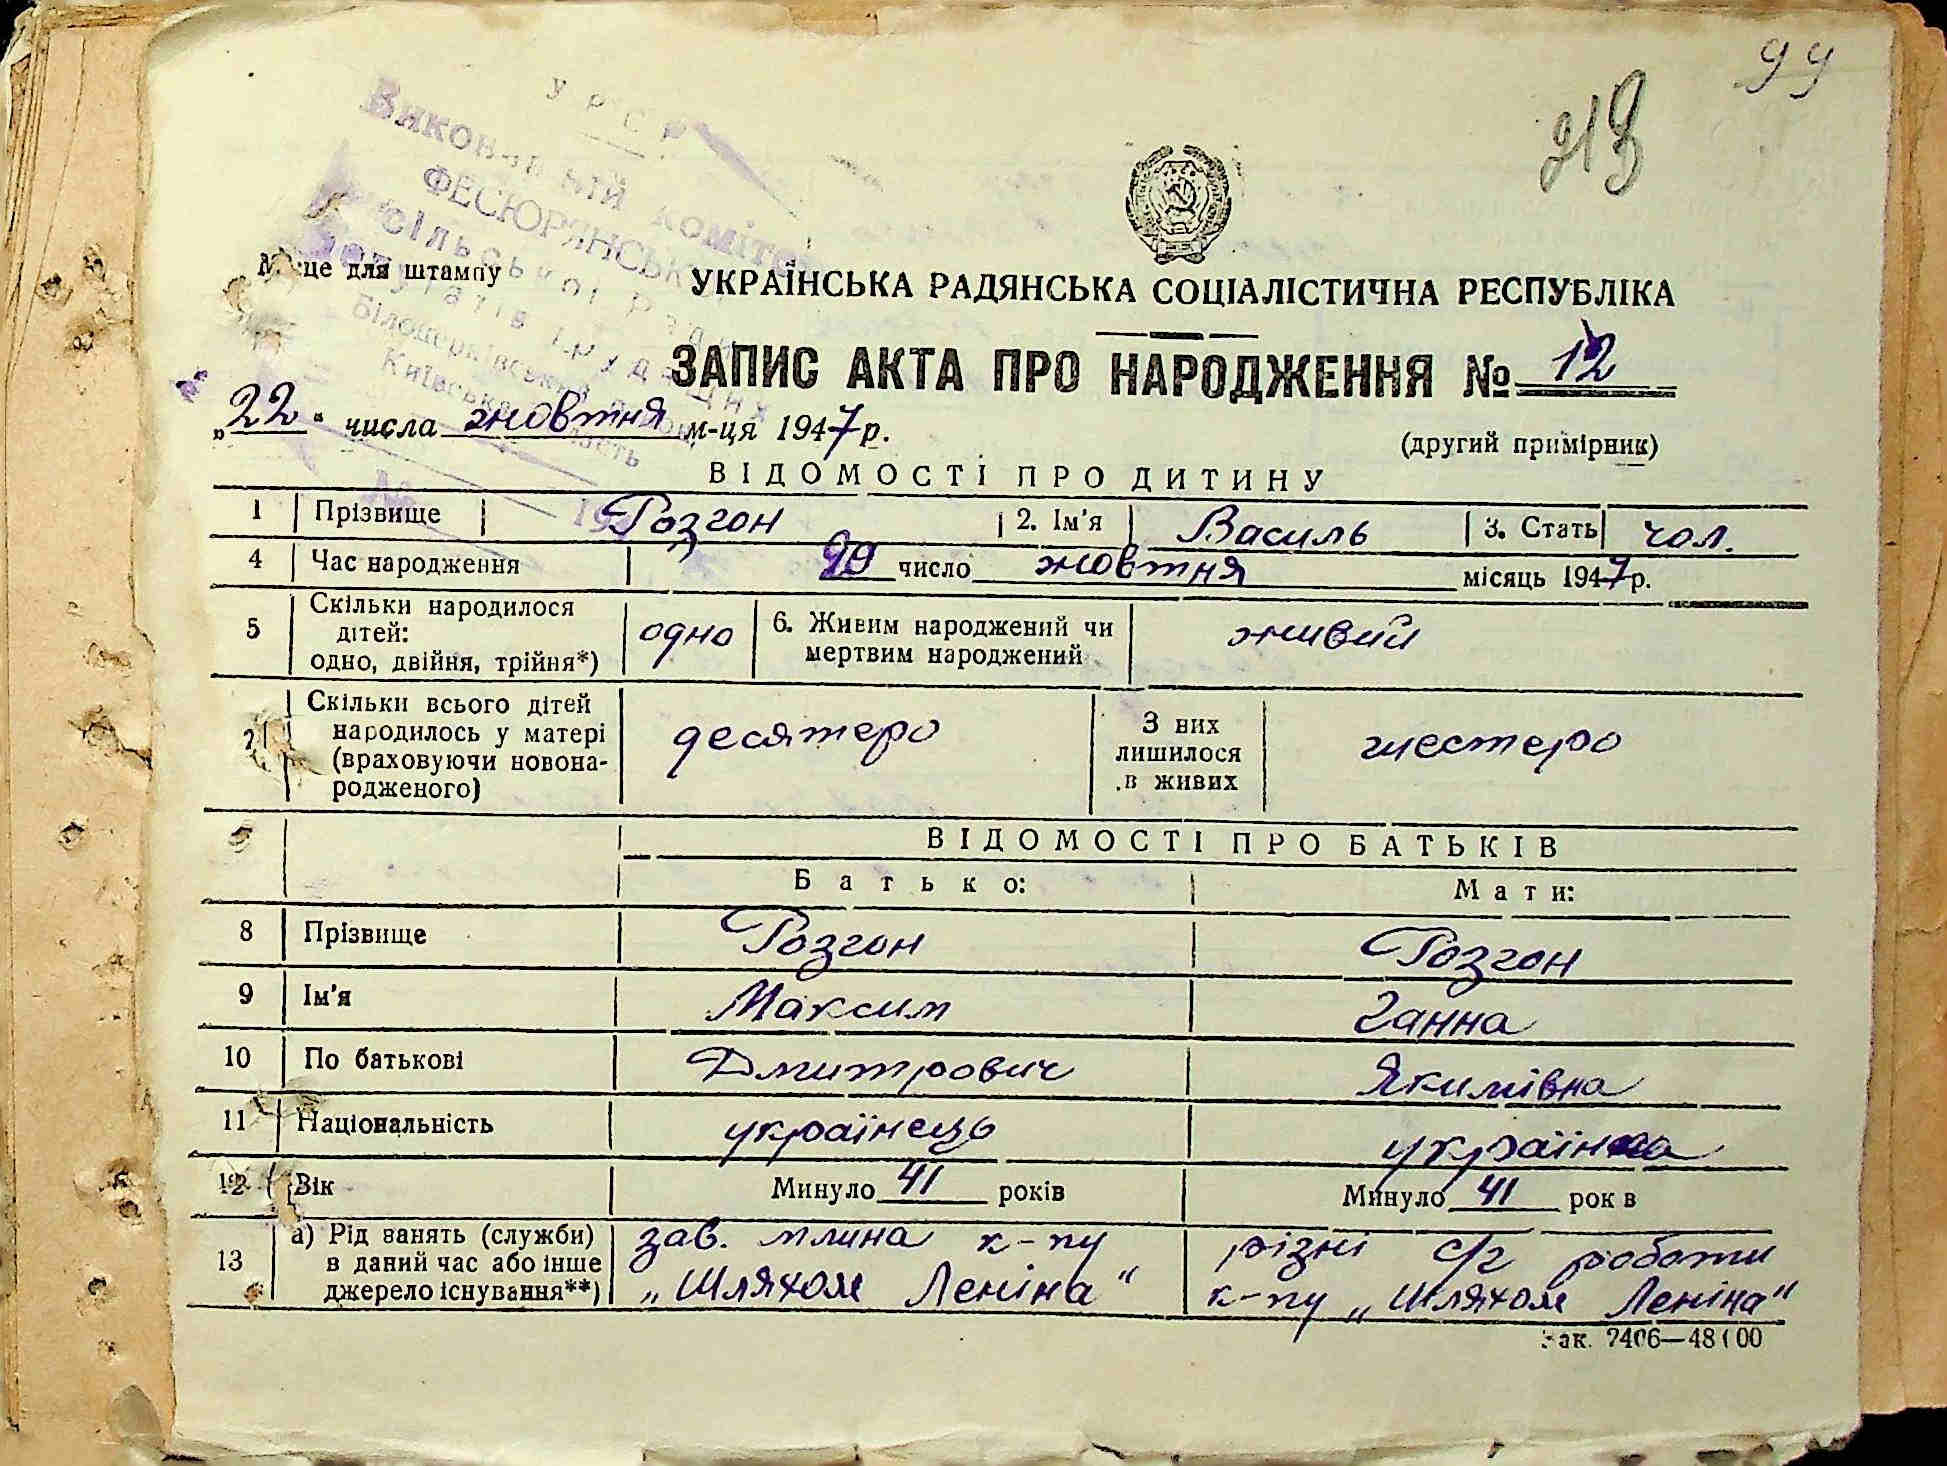 99
213
УРСР
Виконавчий комітет
ФЕСЮРЯНСЬК
сільської ради
депутатів трудящих
Білоцерківськ
Київська область
Місце для штампу
УКРАЇНСЬКА РАДЯНСЬКА СОЦІАЛІСТИЧНА РЕСПУБЛІКА
ЗАПИС АКТА ПРО НАРОДЖЕННЯ № 12
„22“ числа жовтня м-ця 1947 р.
(другий примірник)
ВІДОМОСТІ ПРО ДИТИНУ
1 Прізвище Розгон 2. Ім'я Василь 3. Стать чол.
4 Час народження число жовтня місяць 1947 р.
5 Скільки народилося дітей: одно, двійня, трійня*) одно 6. Живим народжений чи мертвим народжений живий
7 Скільки всього дітей народилось у матері (враховуючи новонародженого) десятеро З них лишилося в живих шестеро
ВІДОМОСТІ ПРО БАТЬКІВ
Батько: Мати:
8 Прізвище Розгон Розгон
9 Ім'я Максим Ганна
10 По батькові Дмитрович Якимівна
11 Національність українець українка
12 Вік Минуло 41 років Минуло 41 рок в
13 а) Рід занять (служби) в даний час або інше джерело існування**) зав. млина к-пу „Шляхом Леніна“ різні с/г роботи к-пу „Шляхом Леніна“
Зак. 2406—48100